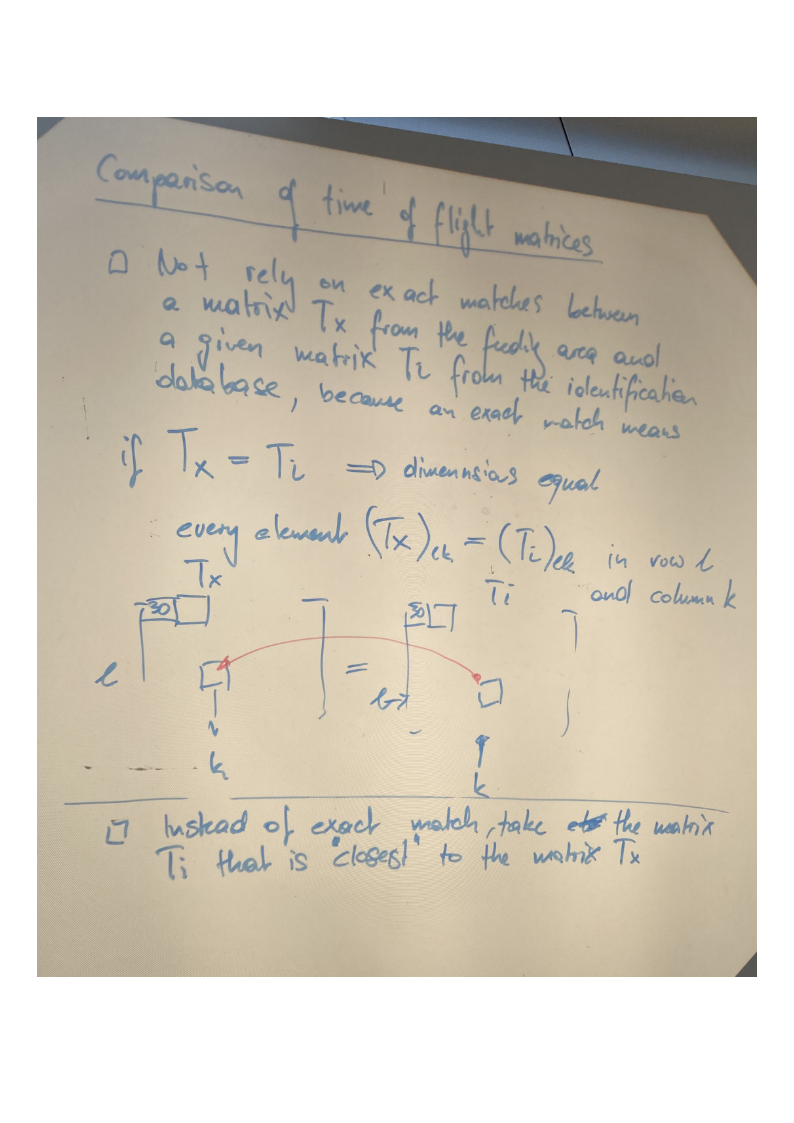 Comparison of time of flight matrices
□ Not rely on exact matches between
a matrix Tx from the feedig area and
a given matrix Ti from the identification
database, because an exact match means
if Tx = Ti ⟹ dimennsions equal
every element (Tx)lk = (Ti)lk in row l
and column k
Tx Ti
30 30
l = l→
k k
□ Instead of exact match, take the matrix
Ti that is "closest" to the matrix Tx